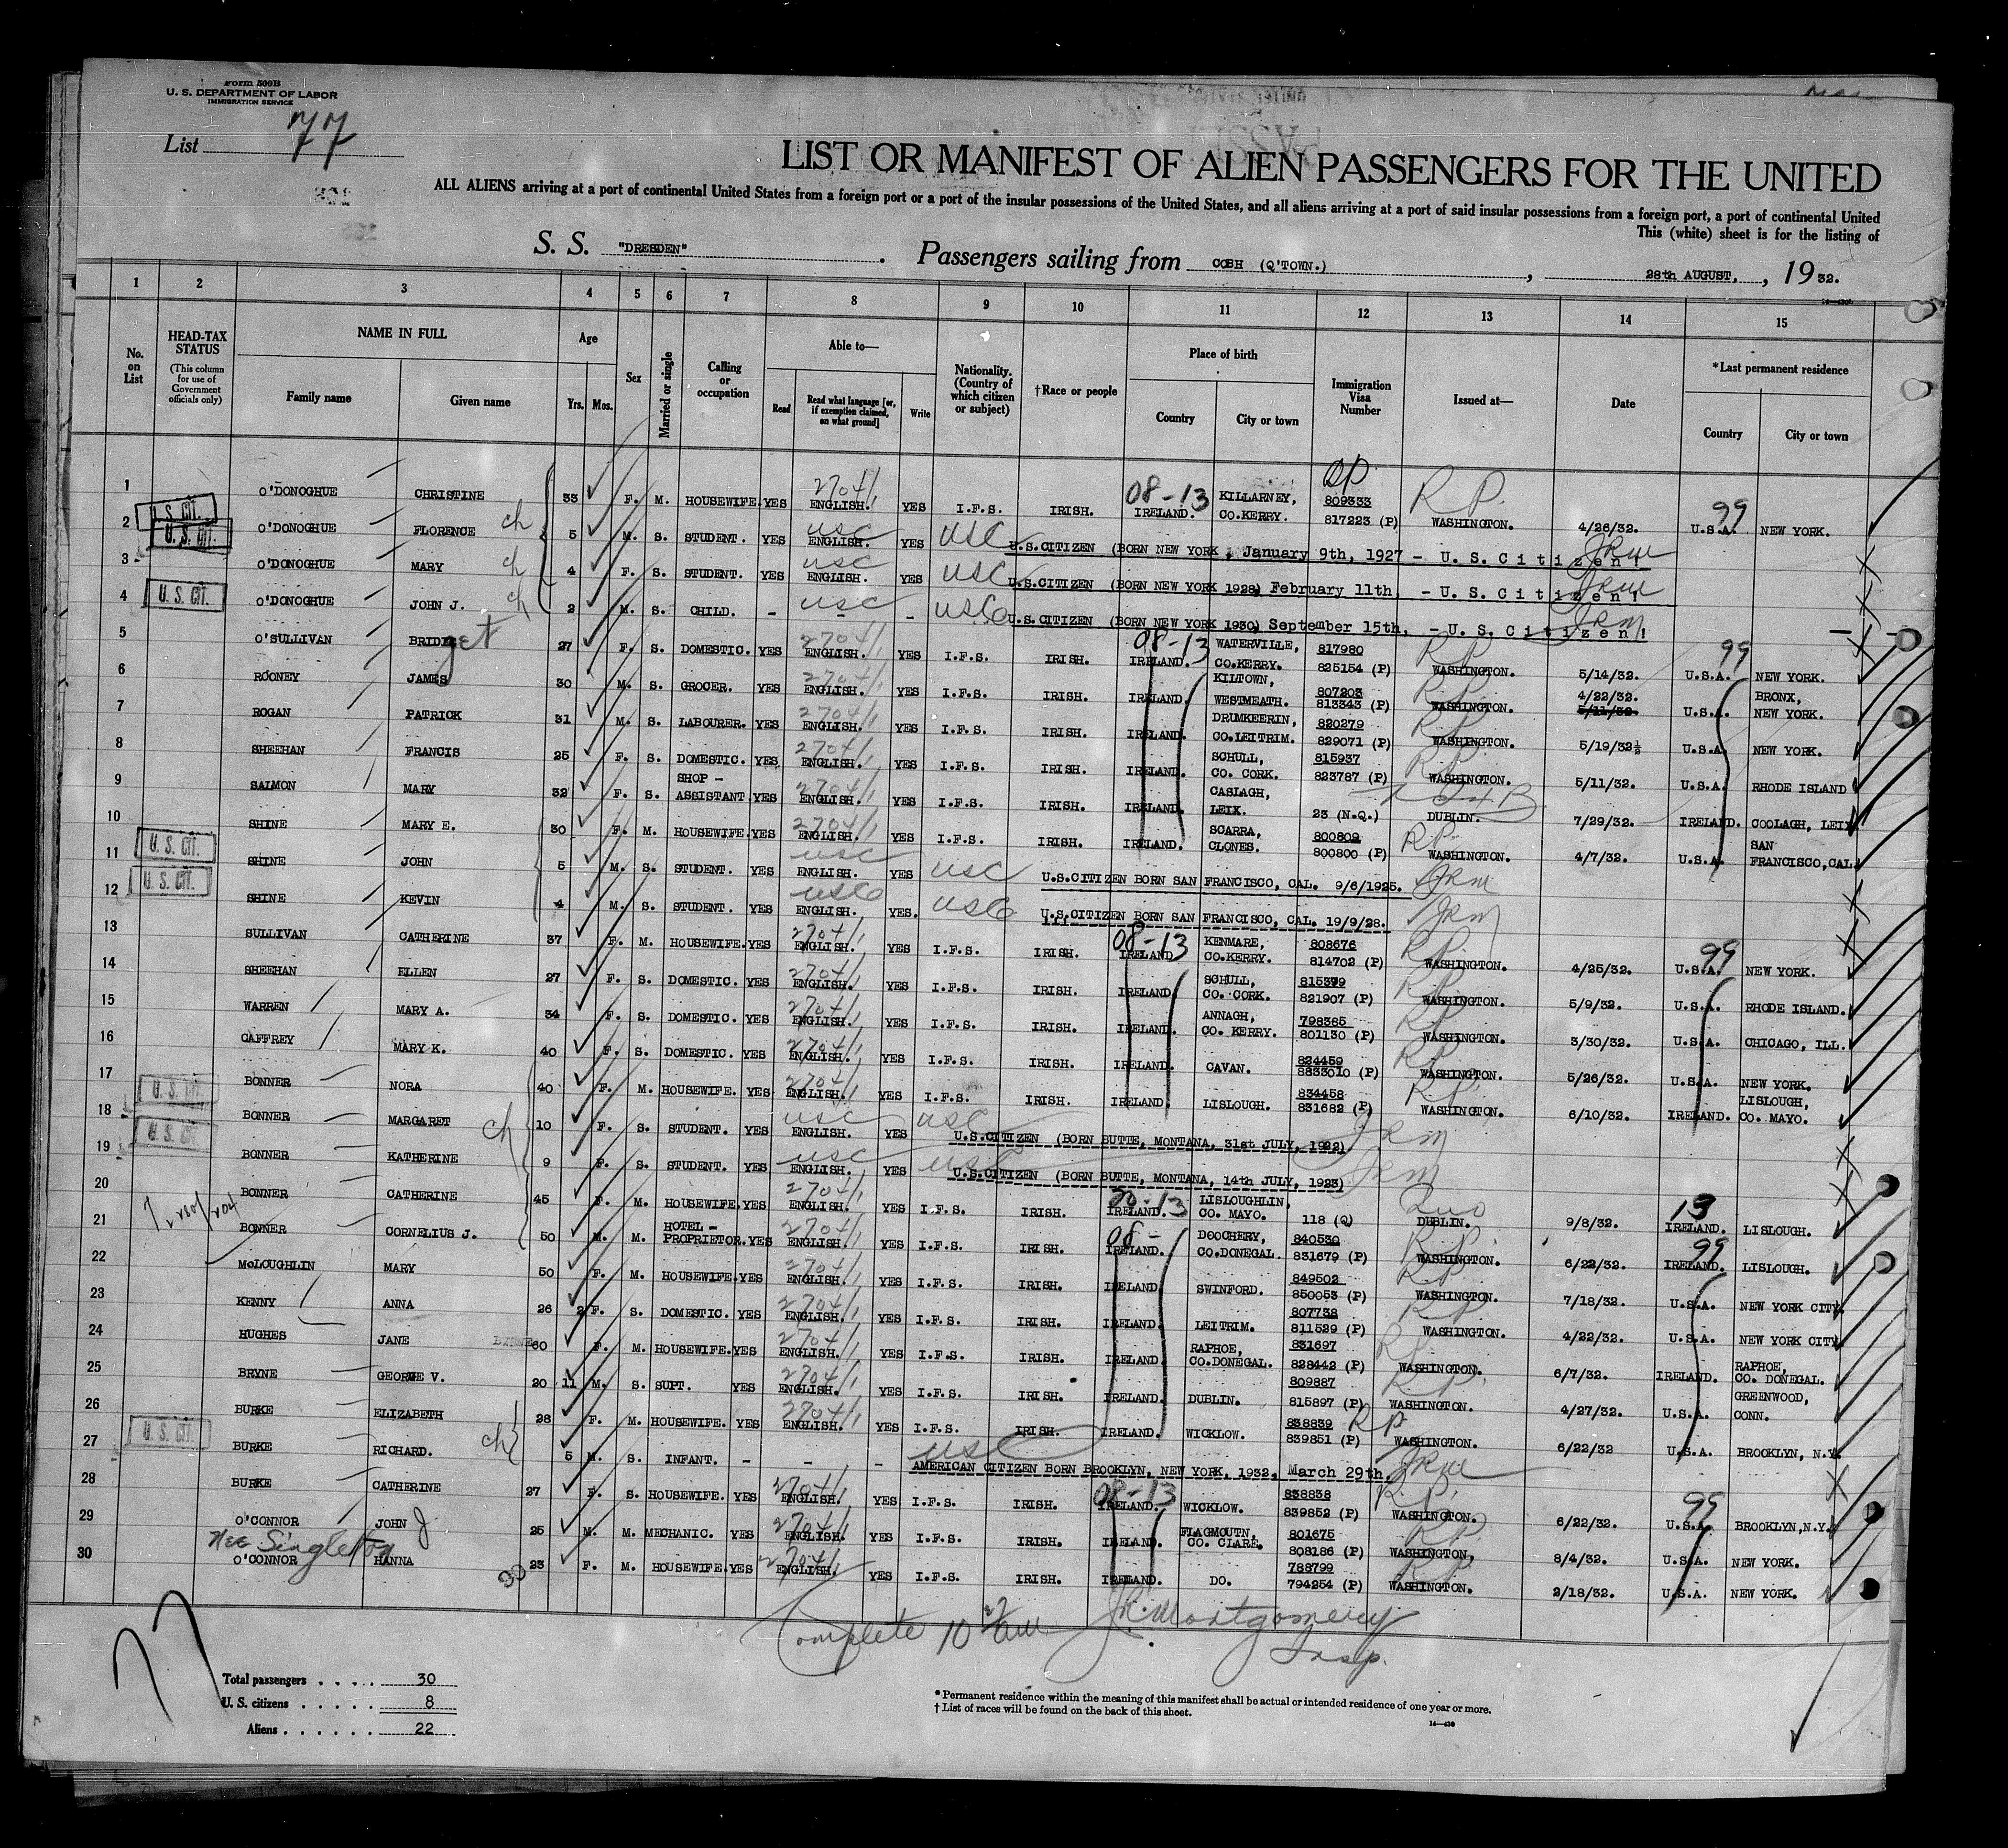 Form 500B
U. S. DEPARTMENT OF LABOR
IMMIGRATION SERVICE
List 77
LIST OR MANIFEST OF ALIEN PASSENGERS FOR THE UNITED
ALL ALIENS arriving at a port of continental United States from a foreign port or a port of the insular possessions of the United States, and all aliens arriving at a port of said insular possessions from a foreign port, a port of continental United
This (white) sheet is for the listing of
S. S. "DRESDEN". Passengers sailing from COBH (Q'TOWN.), 28th AUGUST, , 1932.
1 2 3 4 5 6 7 8 9 10 11 12 13 14 15
No. on List HEAD-TAX STATUS (This column for use of Government officials only) NAME IN FULL Family name Given name Age Yrs. Mos. Sex Married or single Calling or occupation Able to— Read Read what language [or, if exemption claimed, on what ground] Write Nationality. (Country of which citizen or subject) †Race or people Place of birth Country City or town Immigration Visa Number Issued at— Date *Last permanent residence Country City or town
1 O'DONOGHUE CHRISTINE 33 F. M. HOUSEWIFE. YES 2704/1 ENGLISH. YES I.F.S. IRISH. 08-13 IRELAND. KILLARNEY, CO.KERRY. 809333 817223 (P) RP. WASHINGTON. 4/26/32. 99 U.S.A. NEW YORK.
2 U.S. CIT. O'DONOGHUE FLORENCE ch 5 M. S. STUDENT. YES usc ENGLISH. YES USC U.S.CITIZEN (BORN NEW YORK, January 9th, 1927 - U. S. Citizen! JRM
3 U.S. CIT. O'DONOGHUE MARY ch 4 F. S. STUDENT. YES usc ENGLISH. YES USC U.S.CITIZEN (BORN NEW YORK 1928) February 11th, - U. S. Citizen! JRM
4 U.S. CIT. O'DONOGHUE JOHN J. ch 2 M. S. CHILD. - usc - - USC U.S.CITIZEN (BORN NEW YORK 1930) September 15th, - U. S. Citizen! JRM
5 O'SULLIVAN BRIDget 27 F. S. DOMESTIC. YES 2704/1 ENGLISH. YES I.F.S. IRISH. 08-13 IRELAND. WATERVILLE, CO.KERRY. 817980 825154 (P) RP WASHINGTON. 5/14/32. 99 U.S.A. NEW YORK.
6 ROONEY JAMES 30 M. S. GROCER. YES 2704/1 ENGLISH. YES I.F.S. IRISH. IRELAND. KILTOWN, WESTMEATH. 807203 813343 (P) RP WASHINGTON. 4/22/32. 5/11/32. U.S.A. BRONX, NEW YORK.
7 ROGAN PATRICK 31 M. S. LABOURER. YES 2704/1 ENGLISH. YES I.F.S. IRISH. IRELAND. DRUMKEERIN, CO.LEITRIM. 820279 829071 (P) RP WASHINGTON. 5/19/32½ U.S.A. NEW YORK.
8 SHEEHAN FRANCIS 25 F. S. DOMESTIC. YES 2704/1 ENGLISH. YES I.F.S. IRISH. IRELAND. SCHULL, CO. CORK. 815937 823787 (P) RP WASHINGTON. 5/11/32. U.S.A. RHODE ISLAND
9 SALMON MARY 32 F. S. SHOP - ASSISTANT. YES 2704/1 ENGLISH. YES I.F.S. IRISH. IRELAND. CASLAGH, LEIX. 23 (N.Q.) DUBLIN. 7/29/32. IRELAND. COOLAGH, LEIX
10 SHINE MARY E. 30 F. M. HOUSEWIFE. YES 2704/1 ENGLISH. YES I.F.S. IRISH. IRELAND. SCARRA, CLONES. 800809 800800 (P) RP WASHINGTON. 4/7/32. U.S.A. SAN FRANCISCO, CAL.
11 U. S. CIT. SHINE JOHN 5 M. S. STUDENT. YES usc ENGLISH. YES USC U.S.CITIZEN BORN SAN FRANCISCO, CAL. 9/6/1925. JRM
12 U. S. CIT. SHINE KEVIN 4 M. S. STUDENT. YES usc ENGLISH. YES. USC U.S.CITIZEN BORN SAN FRANCISCO, CAL. 19/9/28. JRM
13 SULLIVAN CATHERINE 37 F. M. HOUSEWIFE. YES 2704/1 ENGLISH. YES I.F.S. IRISH. 08-13 IRELAND KENMARE, CO.KERRY. 808676 814702 (P) RP. WASHINGTON. 4/25/32. 99 U.S.A. NEW YORK.
14 SHEEHAN ELLEN 27 F. S. DOMESTIC. YES 2704/1 ENGLISH. YES I.F.S. IRISH. IRELAND SCHULL, CO. CORK. 815379 821907 (P) RP WASHINGTON. 5/9/32. U.S.A. RHODE ISLAND.
15 WARREN MARY A. 34 F. S. DOMESTIC. YES 2704/1 ENGLISH. YES I.F.S. IRISH. IRELAND. ANNAGH, CO. KERRY. 798385 801130 (P) RP WASHINGTON. 3/30/32. U.S.A. CHICAGO, ILL.
16 CAFFREY MARY K. 40 F. S. DOMESTIC. YES 2704/1 ENGLISH. YES I.F.S. IRISH. IRELAND. CAVAN. 824459 8833010 (P) RP WASHINGTON. 5/26/32. U.S.A. NEW YORK.
17 BONNER NORA 40 F. M. HOUSEWIFE. YES 2704/1 ENGLISH. YES I.F.S. IRISH. IRELAND. LISLOUGH. 834458 831682 (P) RP WASHINGTON. 6/10/32. IRELAND. LISLOUGH, CO. MAYO.
18 U. S. CIT BONNER MARGARET ch 10 F. S. STUDENT. YES usc ENGLISH. YES usc U.S.CITIZEN (BORN BUTTE, MONTANA, 31st JULY, 1922) JRM
19 U. S. CIT. BONNER KATHERINE 9 F. S. STUDENT. YES usc ENGLISH. YES usc U.S.CITIZEN (BORN BUTTE, MONTANA, 14th JULY, 1923) JRM
20 BONNER CATHERINE 45 F. M. HOUSEWIFE. YES 2704/1 ENGLISH. YES I.F.S. IRISH. 20-13 IRELAND. LISLOUGHLIN, CO. MAYO. 118 (Q) Quo DUBLIN. 9/8/32. 13 IRELAND. LISLOUGH.
21 BONNER CORNELIUS J. 50 M. M. HOTEL - PROPRIETOR. YES 2704/1 ENGLISH. YES I.F.S. IRISH. 08- IRELAND. DOOCHERY, CO.DONEGAL. 840530 831679 (P) RP. WASHINGTON. 6/22/32. 99 IRELAND. LISLOUGH.
22 McLOUGHLIN MARY 50 F. M. HOUSEWIFE. YES 2704/1 ENGLISH. YES I.F.S. IRISH. IRELAND SWINFORD. 849502 850053 (P) RP. WASHINGTON. 7/18/32. U.S.A. NEW YORK CITY.
23 KENNY ANNA 26 2 F. S. DOMESTIC. YES 2704/1 ENGLISH. YES I.F.S. IRISH. IRELAND. LEITRIM. 807738 811529 (P) RP WASHINGTON. 4/22/32. U.S.A. NEW YORK CITY
24 HUGHES JANE 60 F. M. HOUSEWIFE. YES 2704/1 ENGLISH. YES I.F.S. IRISH. IRELAND RAPHOE, CO.DONEGAL. 831697 828442 (P) RP WASHINGTON. 6/7/32. IRELAND. RAPHOE, CO. DONEGAL.
25 BRYNE GEORGE V. 20 11 M. S. SUPT. YES 2704/1 ENGLISH. YES I.F.S. IRISH. IRELAND. DUBLIN. 809887 815897 (P) RP. WASHINGTON. 4/27/32. U.S.A. GREENWOOD, CONN.
26 BURKE ELIZABETH 28 F. M. HOUSEWIFE. YES 2704/1 ENGLISH. YES I.F.S. IRISH. IRELAND. WICKLOW. 838839 839851 (P) RP WASHINGTON. 6/22/32 U.S.A. BROOKLYN, N.Y.
27 U. S. CIT. BURKE RICHARD. ch 5 M. S. INFANT. - - - usc AMERICAN CITIZEN BORN BROOKLYN, NEW YORK, 1932, March 29th, JRM
28 BURKE CATHERINE 27 F. S. HOUSEWIFE. YES 2704/1 ENGLISH. YES I.F.S. IRISH. 08-13 IRELAND. WICKLOW. 838838 839852 (P) R.P. WASHINGTON. 6/22/32. 99 U.S.A. BROOKLYN, N.Y.
29 O'CONNOR JOHN J 25 M. M. MECHANIC. YES 2704/1 ENGLISH. YES I.F.S. IRISH. IRELAND. FLAGMOUTN, CO. CLARE. 801675 808186 (P) RP WASHINGTON, 8/4/32. U.S.A. NEW YORK.
Nee Singleton
30 O'CONNOR HANNA 30 23 F. M. HOUSEWIFE. YES 2704/1 ENGLISH. YES I.F.S. IRISH. IRELAND. DO. 788799 794254 (P) RP WASHINGTON. 2/18/32. U.S.A. NEW YORK.
Complete 10 am J.R. Montgomery
Insp.
77
Total passengers . . . . . 30
U. S. citizens . . . . . 8
Aliens . . . . . . 22
* Permanent residence within the meaning of this manifest shall be actual or intended residence of one year or more.
† List of races will be found on the back of this sheet.
14—430